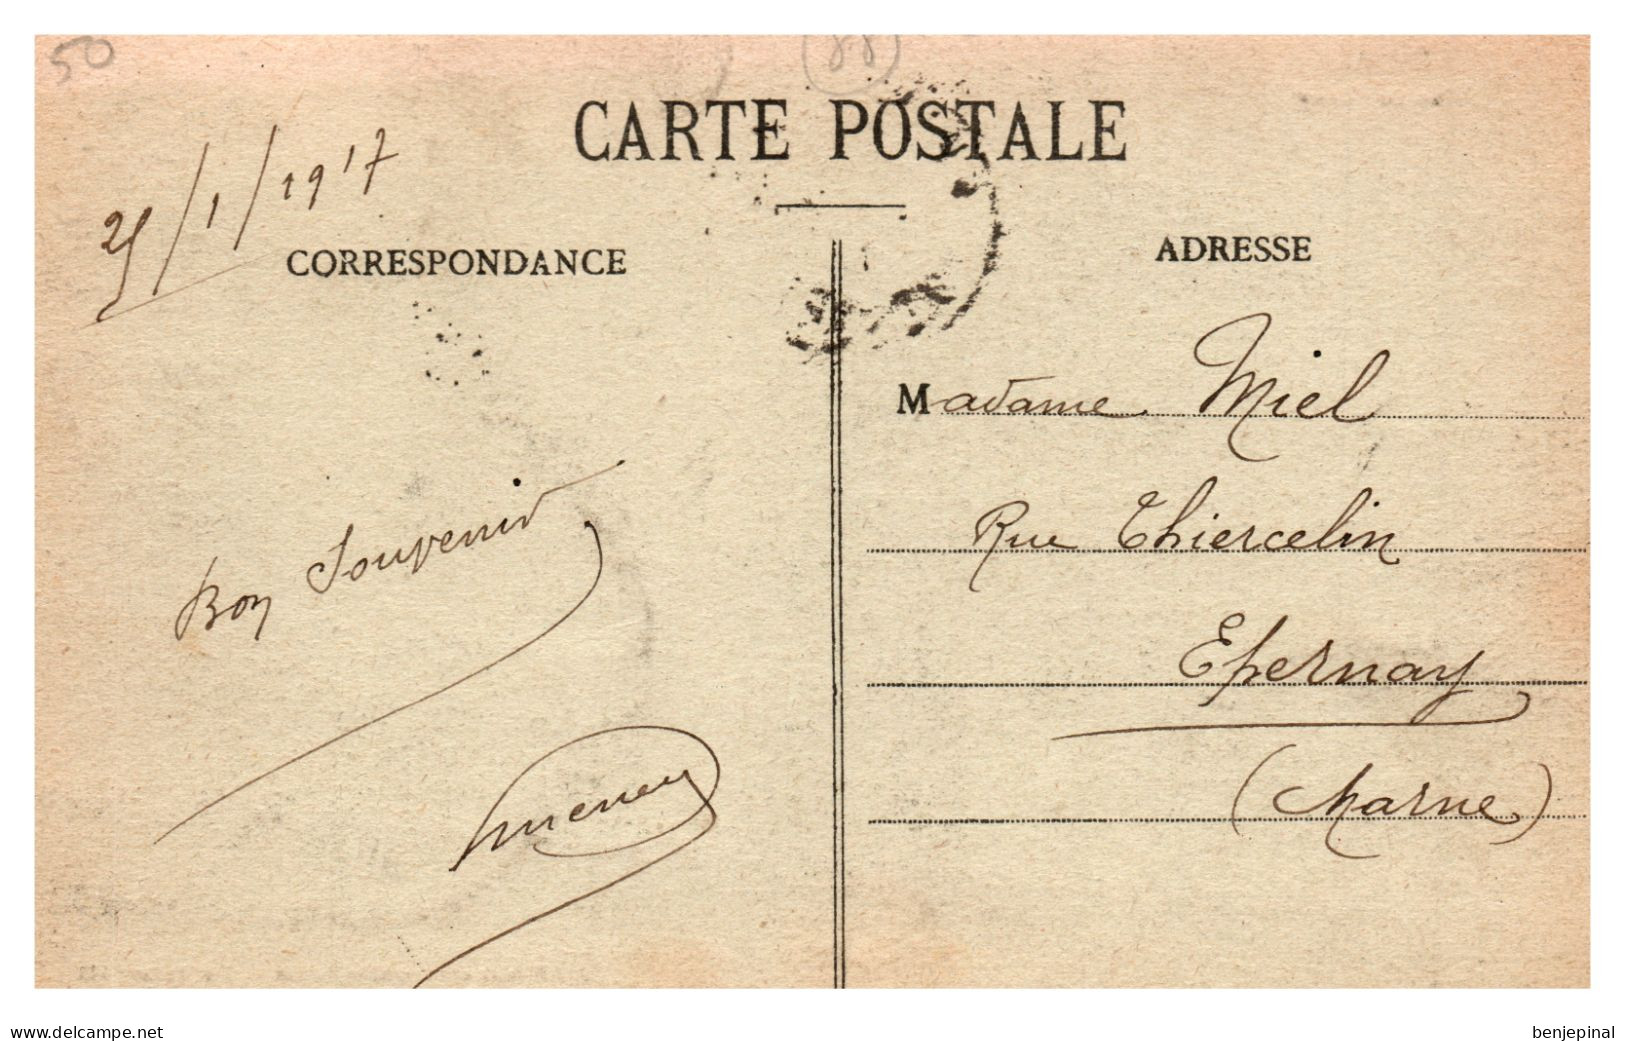 50
(88)
CARTE POSTALE
25/1/1917
CORRESPONDANCE
ADRESSE
Madame Miel
Rue Thiercelin
Epernay
(Marne)
Bon Souvenir
www.delcampe.net
benjepinal